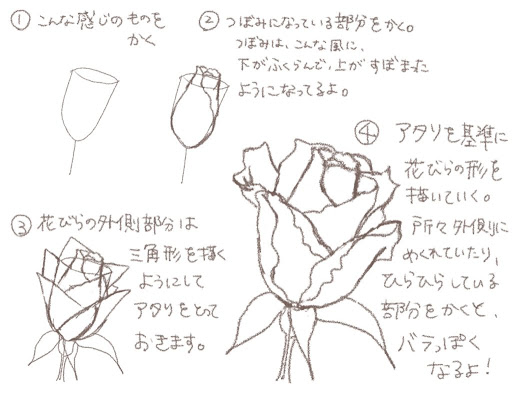 ① こんな感じのものを
かく
② つぼみになっている部分をかく。
つぼみは、こんな風に、
下がふくらんで、上がすぼまった
ようになってるよ。
③ 花びらの外側部分は
三角形を描く
ようにして
アタリをとって
おきます。
④ アタリを基準に
花びらの形を
描いていく。
所々外側に
めくれていたり、
ひらひらしている
部分をかくと、
バラっぽく
なるよ!